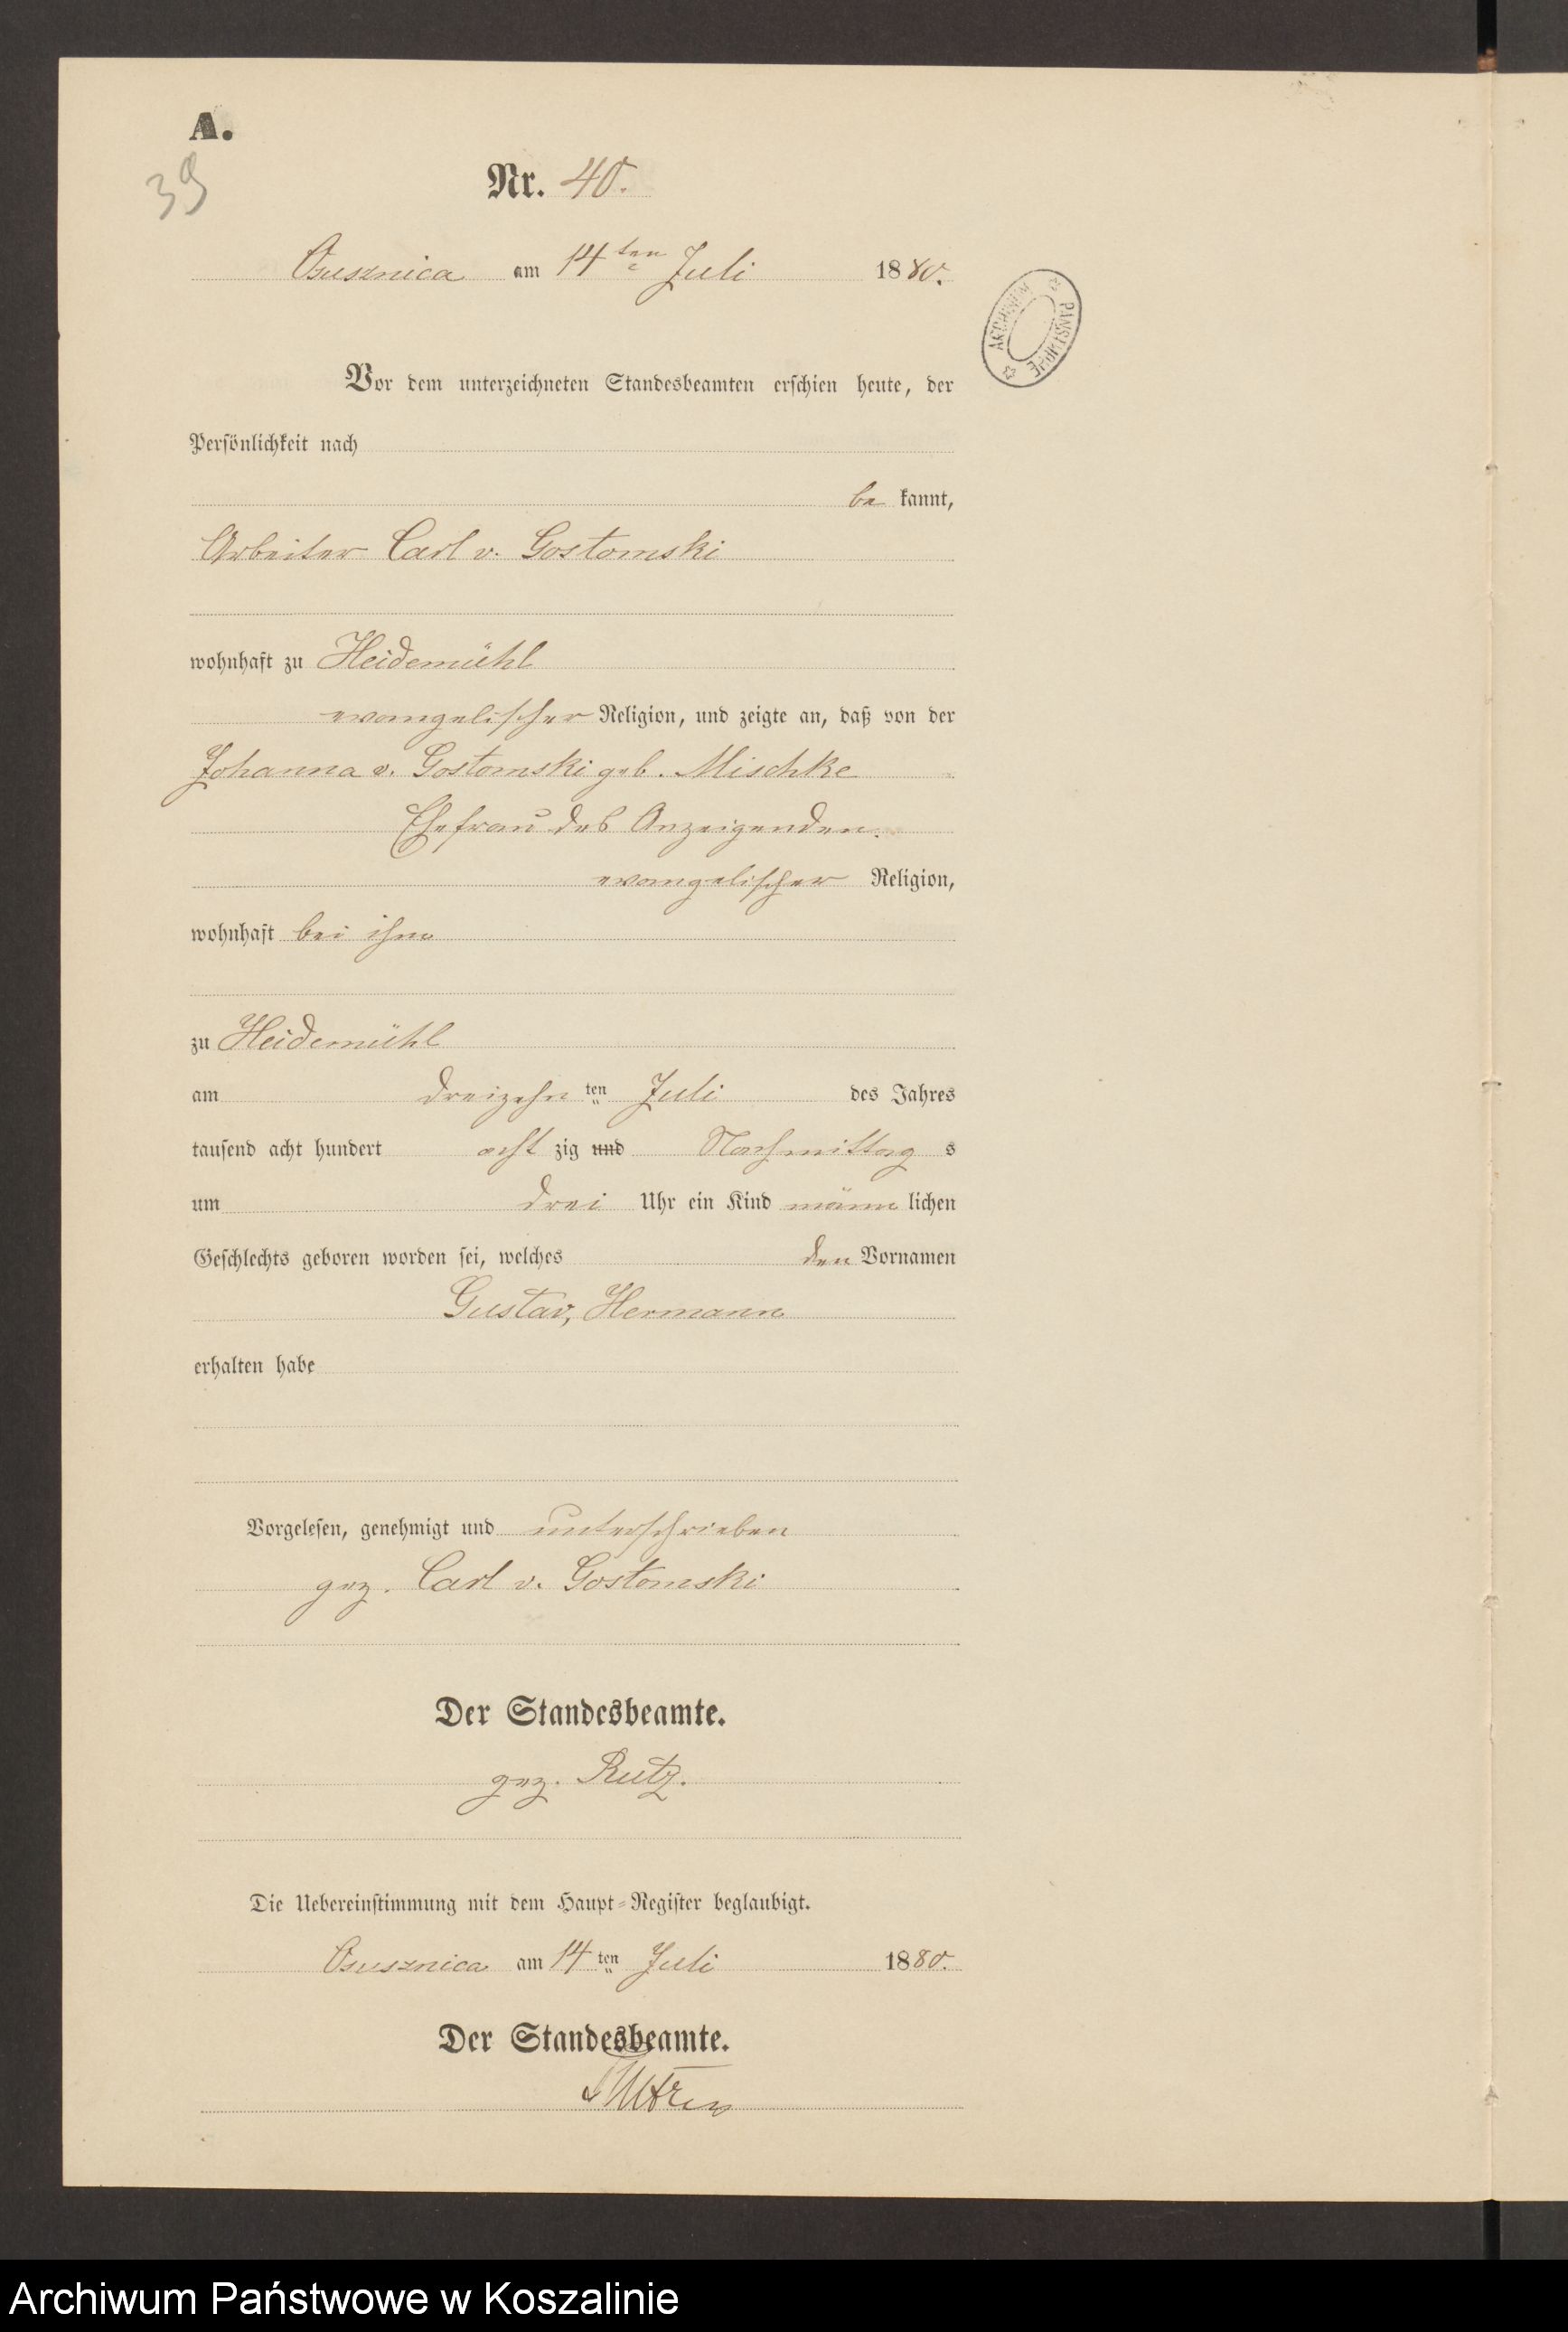 A.
39
Nr. 40.
Ossusznica am 14ten Juli 1880.
ARCHIWUM PAŃSTWOWE
Vor dem unterzeichneten Standesbeamten erschien heute, der
Persönlichkeit nach
be kannt,
Arbeiter Carl v. Gostomski
wohnhaft zu Heidemühl
evangelischer Religion, und zeigte an, daß von der
Johanna v. Gostomski geb. Mischke
Ehefrau des Anzeigenden.
evangelischer Religion,
wohnhaft bei ihm
zu Heidemühl
am dreizehn ten Juli des Jahres
tausend acht hundert acht zig und Nachmittag s
um drei Uhr ein Kind männ lichen
Geschlechts geboren worden sei, welches den Vornamen
Gustav, Hermann
erhalten habe
Vorgelesen, genehmigt und unterschrieben
gez. Carl v. Gostomski
Der Standesbeamte.
gez. Rutz.
Die Uebereinstimmung mit dem Haupt-Register beglaubigt.
Ossusznica am 14ten Juli 1880.
Der Standesbeamte.
Archiwum Państwowe w Koszalinie